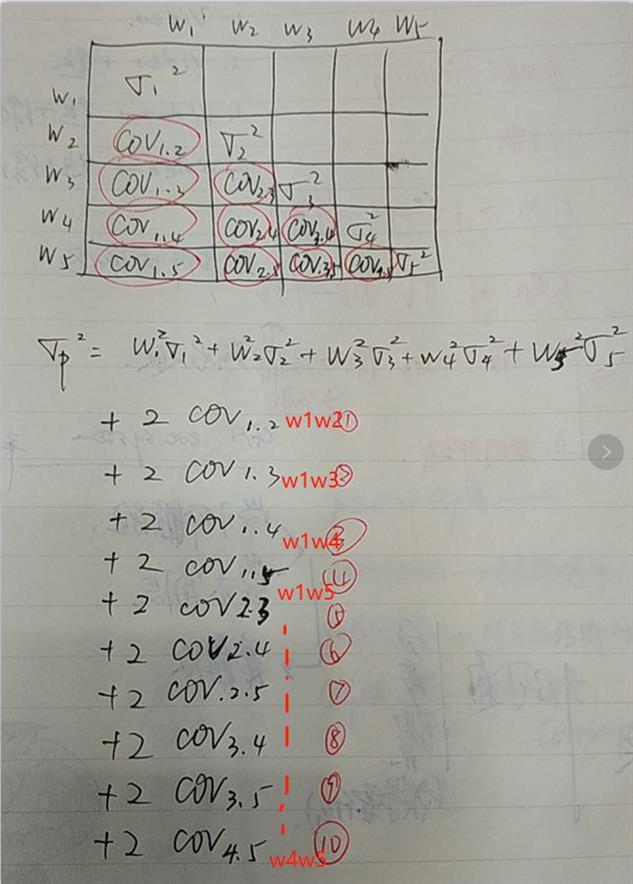 W₁ W₂ W₃ W₄ W₅
W₁ σ₁²
W₂ COV₁.₂ σ₂²
W₃ COV₁.₃ COV₂.₃ σ₃²
W₄ COV₁.₄ COV₂.₄ COV₃.₄ σ₄²
W₅ COV₁.₅ COV₂.₅ COV₃.₅ COV₄.₅ σ₅²
σₚ² = W₁²σ₁² + W₂²σ₂² + W₃²σ₃² + W₄²σ₄² + W₅²σ₅²
+ 2 COV₁.₂ w1w2 ①
+ 2 COV₁.₃ w1w3 ②
+ 2 COV₁.₄ w1w4 ③
+ 2 COV₁.₅ w1w5 ④
+ 2 COV₂.₃ ⑤
+ 2 COV₂.₄ ⑥
+ 2 COV.₂.₅ ⑦
+ 2 COV₃.₄ ⑧
+ 2 COV₃.₅ ⑨
+ 2 COV₄.₅ w4w5 ⑩